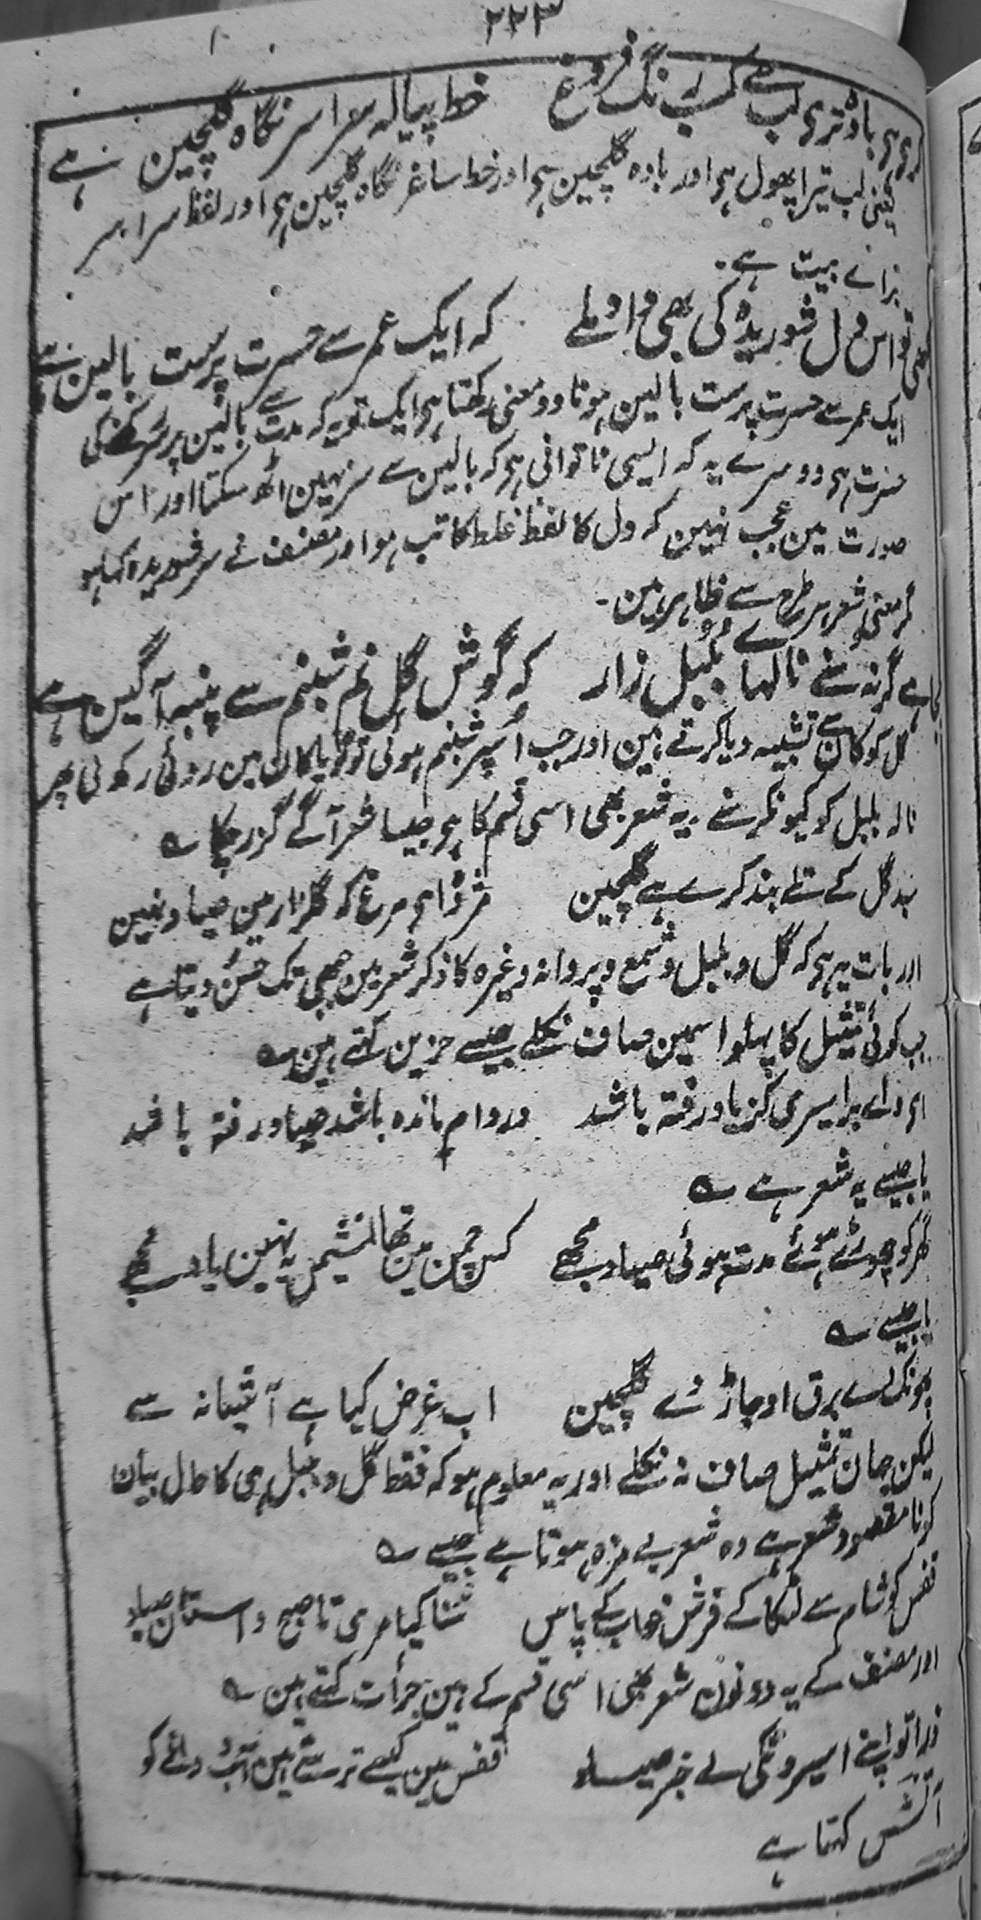 ۲۲۳
کرے ہے بادہ تری لب سے کسب رنگ فروغ خط پیالہ سراسر نگاہ گلچین ہے
یعنی لب تیرا پھول ہی اور بادہ گلچین ہی اور خط ساغر نگاہ گلچین ہی اور لفظ سراسر
برائے بیت ہے۔
کبھی تو اس دل شوریدہ کی بھی داد ملے کہ ایک عمر سے حسرت پرست بالین ہے
ایک عمر سے حسرت پرست بالین ہونا دو معنی رکھتا ہی ایک تو یہ کہ مدت سے بالین پر سر رکھنے کی
حسرت ہی دوسرے یہ کہ ایسی ناتوانی ہی کہ بالین سے سر نہین اٹھ سکتا اور اس
صورت مین عجب نہین کہ دل کا لفظ غلط کاتب ہو اور مصنف نے سر شوریدہ کہا ہو
مگر معنی شعر ہر طرح سے ظاہر ہین۔
بجا ہے گر نہ سنے نالہا ے بُلبل زار کہ گوش گل نم شبنم سے پنبہ آگین ہے
گل کو کان سے تشبیہ دیا کرتے ہین اور جب اُسپر شبنم ہوئی تو گویا کان مین روئی رکھ لی پھر
نالہ بلبل کو کیونکر سنے ۔ یہ شعر بھی اسی قسم کا ہی جیسا شعر آگے گزر چکا ؎
سبد گل کے تلے بند کرے ہے گلچین مژدہ ای مرغ کہ گلزار مین صیاد نہین
اور بات یہ ہی کہ گل و بلبل و شمع و پروانہ وغیرہ کا ذکر شعر مین جبھی تک حسن دیتا ہے
جب کوئی تمثیل کا پہلو اسمین صاف نکلے جیسے حزین کہتے ہین ؎
ای وای بر اسیری کز یاد رفتہ باشد در دام ماندہ باشد صیاد رفتہ باشد
یا جیسے یہ شعر ہے ؎
گھر کو چھوڑے ہوئے مدت ہوئی صیاد مجھے کس چمن مین تھا نشیمن یہ نہین یاد مجھے
یا جیسے ؎
پھونک دے برق اوجاڑ دے گلچین اب غرض کیا ہے آشیانہ سے
لیکن جہان تمثیل صاف نہ نکلے اور یہ معلوم ہو کہ فقط گل و بلبل ہی کا حال بیان
کرنا مقصود شعر ہے وہ شعر بے مزہ ہوتا ہے جیسے ؎
قفس کو شام سے لٹکا کے فرش خواب کے پاس سُنا کیا مری تا صبح داستان صیاد
اور مصنف کے یہ دونون شعر بھی اسی قسم کے ہین جرأت کہتے ہین ؎
ذرا تو اپنے اسیرون کی لے خبر صیاد قفس مین کیسے ترستے ہین آب و دانے کو
آتش کہتا ہے